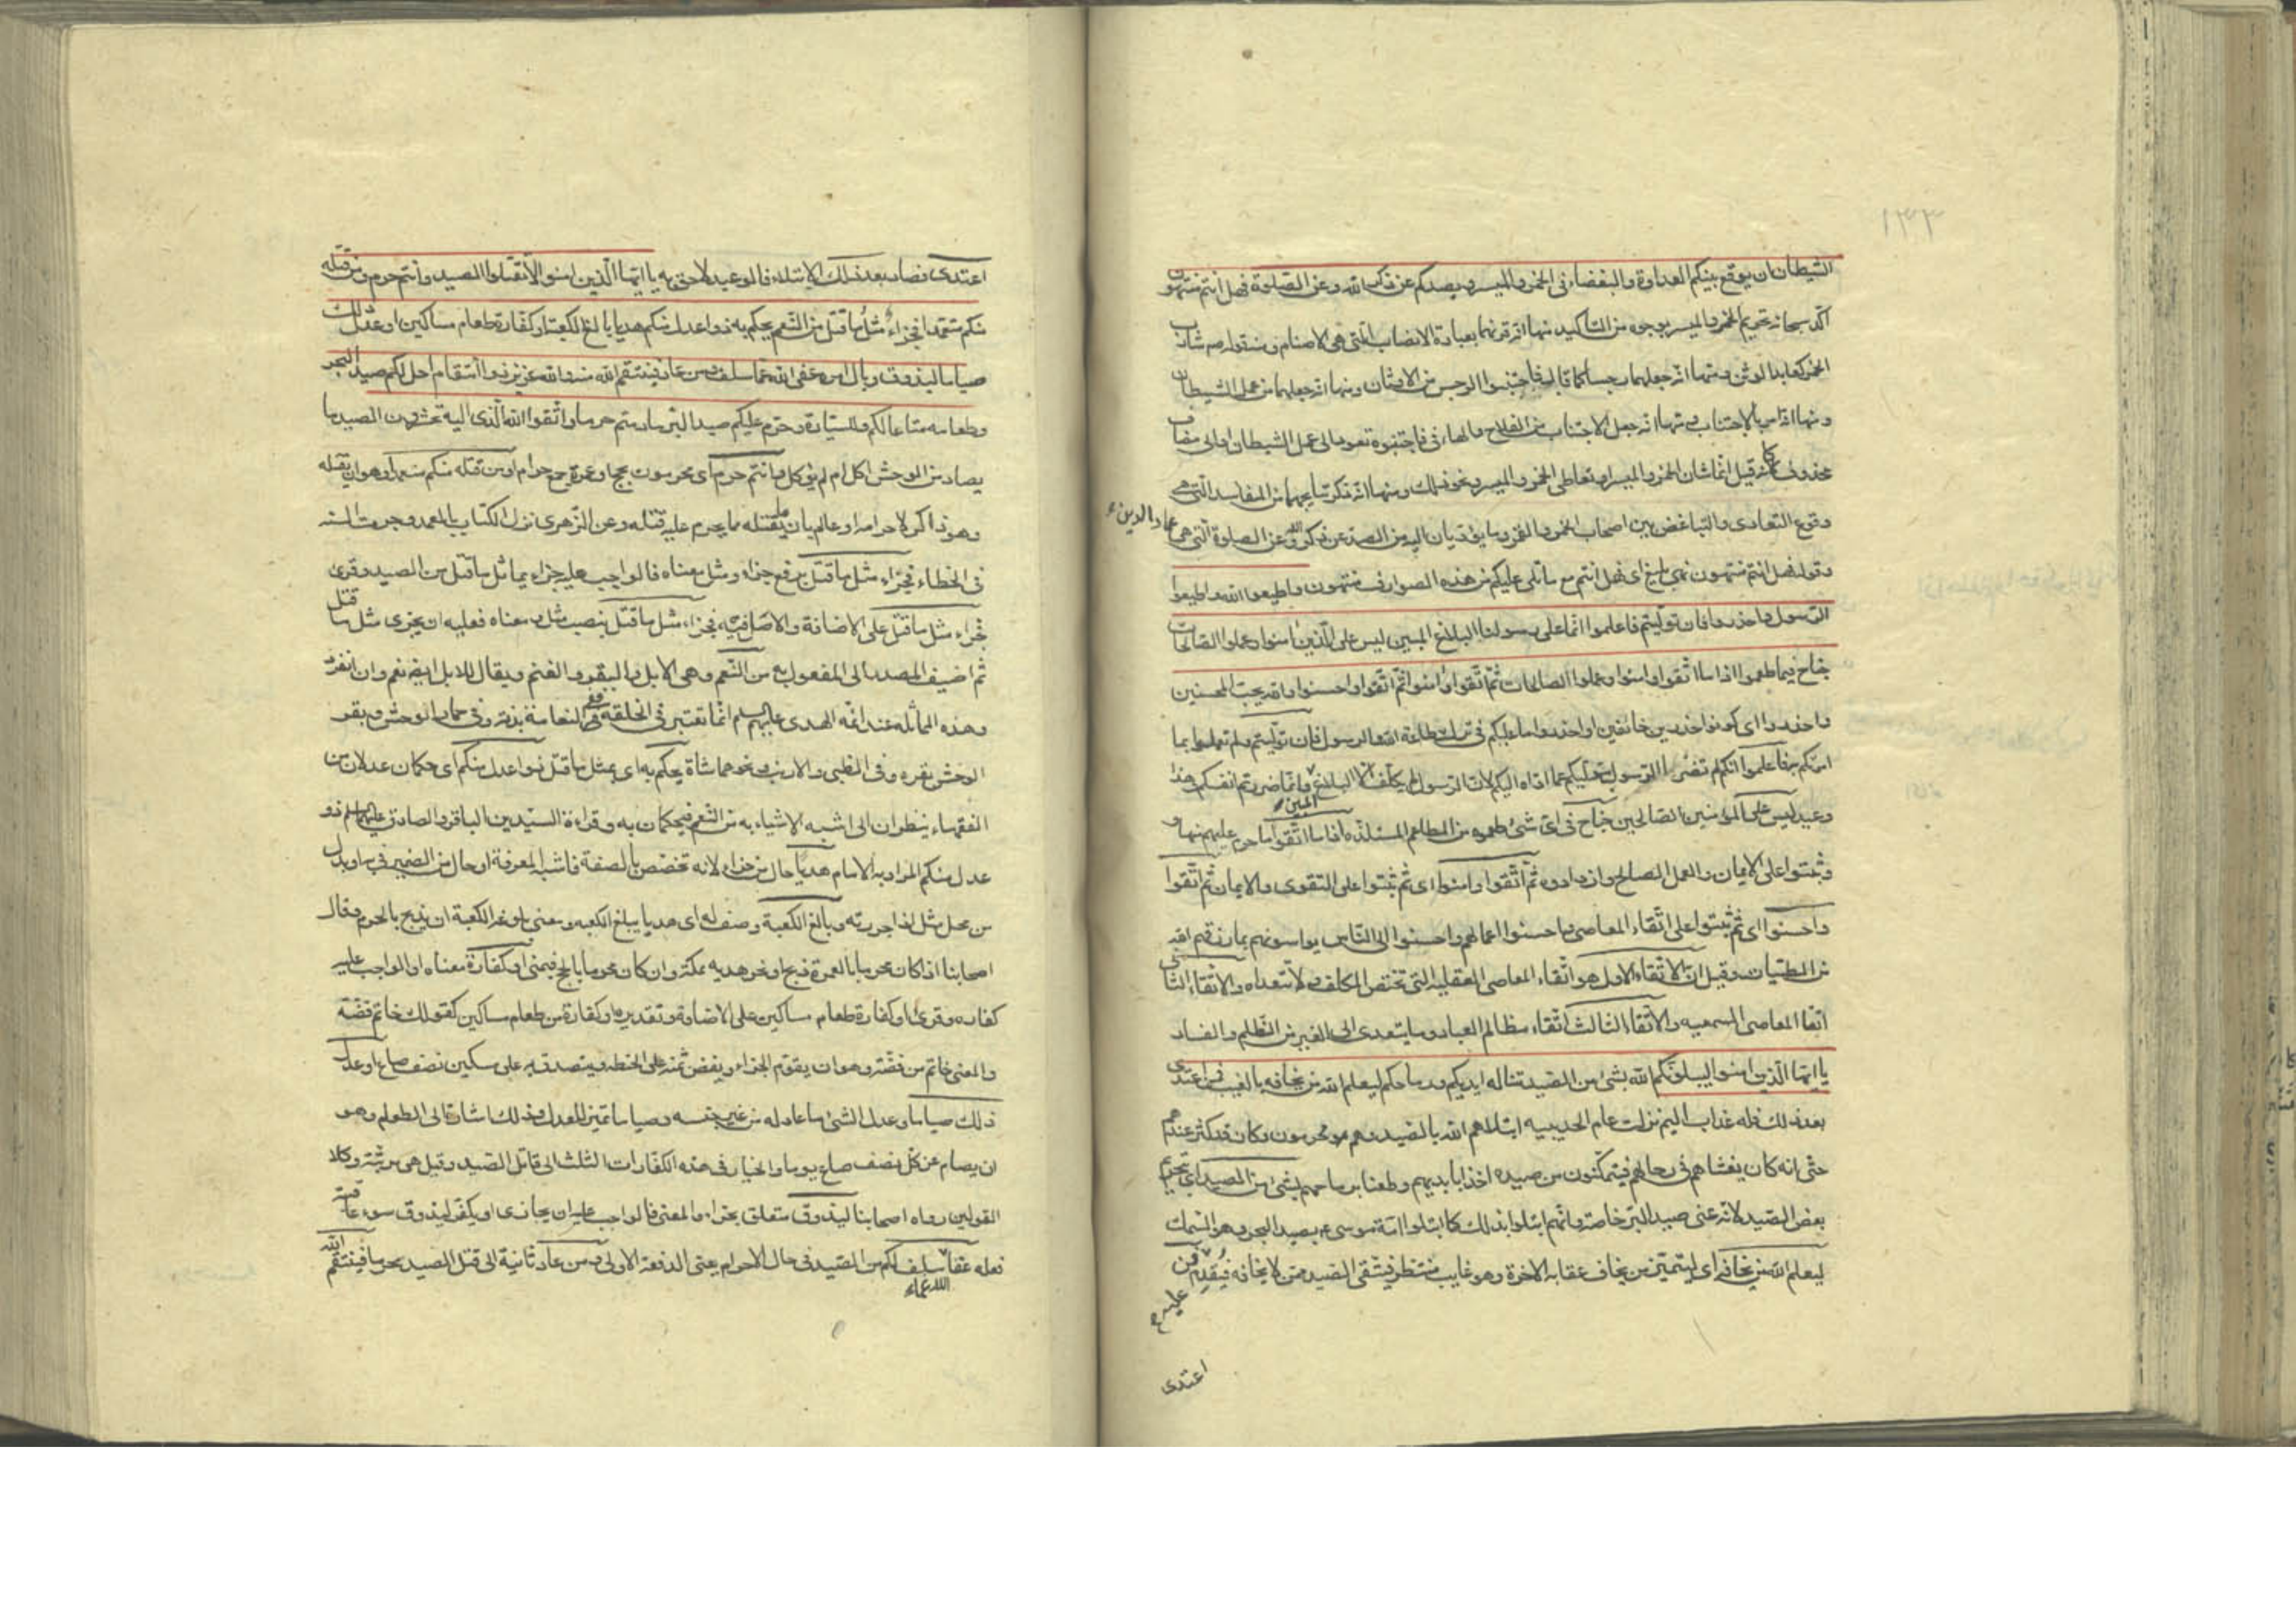 ١٣٣
الشيطان ان يوقع بينكم العداوة والبغضاء فى الخمر والميسر ويصدكم عن ذكر الله وعن الصلوة فهل انتم منتهون
اكّد سبحانه تحريم الخمر والميسر بوجوه من التاكيد منها انه قرنهما بعبادة الانصاب التى هى الاصنام ومنه قوله ص شارب
الخمر كعابد الوثن ومنها انّه جعلهما رجسا كما قال فاجتنبوا الرجس من الاوثان ومنها انه جعلهما من عمل الشيطان
ومنها انه امر بالاجتناب ومنها انه جعل الاجتناب من الفلاح والهاء فى فاجتنبوه تعود الى عمل الشيطان او الى مضاف
محذوف كانه قيل انّما شان الخمر والميسر او تعاطى الخمر والميسر ونحو ذلك ومنها انه ذكر نتايجهما من المفاسد التى هى
وقوع التعادى والتباغض بين اصحاب الخمر والقمر وما يؤديان اليه من الصد عن ذكر الله وعن الصلوة التى هى عماد الدين
وقوله فهل انتم منتهون نهى بليغ اى فهل انتم مع ما تلى عليكم من هذه الصوارف منتهون واطيعوا الله واطيعوا
الرسول واحذروا فان توليتم فاعلموا انّما على رسولنا البلاغ المبين ليس على الّذين امنوا وعملوا الصالحات
جناح فيما طعموا اذا ما اتّقوا وامنوا وعملوا الصالحات ثمّ اتّقوا وامنوا ثمّ اتّقوا واحسنوا والله يحبّ المحسنين
واحذروا اى كونوا حذرين خائفين او احذروا ما عليكم فى ترك طاعة الله والرسول فان توليتم ولم تعملوا بما
امرتكم به فاعلموا انّكم لم تضرّوا الرسول بتوليكم عما اداه اليكم لانّ الرسول لم يكلّف الا البلاغ المبين وانّما ضررتم انفسكم وهذا
وعيد ليس على المؤمنين الصالحين جناح فى اىّ شئ طعموه من المطاعم المستلذه اذا ما اتّقوا ما حرم عليهم منها و
وثبتوا على الايمان والعمل الصالح وازدادوه ثمّ اتّقوا وامنوا اى ثمّ ثبتوا على التقوى والايمان ثمّ اتّقوا
واحسنوا اى ثمّ ثبتوا على اتّقاء المعاصى واحسنوا اعمالهم واحسنوا الى النّاس يواسونهم بما رزقهم الله
من الطيّبات وقيل انّ الاتّقاء الاول هو اتّقاء المعاصى العقليه التى تختص المكلف ولا تتعداه والاتّقاء الثانى
اتقا المعاصى السمعيه والاتّقاء الثالث اتّقاء مظالم العباد وما يتعدى الى الغير من الظّلم والفساد
يا ايّها الّذين امنوا ليبلونّكم الله بشئ من الصّيد تناله ايديكم ورماحكم ليعلم الله من يخافه بالغيب فمن اعتدى
بعد ذلك فله عذاب اليم نزلت عام الحديبيه ابتلاهم الله بالصّيد وهم محرمون وكان قد كثر عندهم
حتّى انه كان يغشاهم فى رحالهم فيتمكّنون من صيده اخذا بايديهم وطعنا برماحهم بشئ من الصيد اى تحريم
بعض الصّيد لانّه عنى صيد البرّ خاصة وانّهم ابتلوا بذلك كما ابتلوا امّة موسى ع بصيد البحر وهو السّمك
ليعلم الله من يخافه اى ليتميّز من يخاف عقابه الاخرة وهو غايب منتظر فيتّقى الصّيد ممّن لا يخافه فيُقدِم عليه فمن
اعتدى
اعتدى فصاد بعد ذلك الابتلاء فالوعيد لاحق به يا ايّها الّذين امنوا لا تقتلوا الصيد وانتم حرم ومن قتله
منكم متعمدا فجزاءٌ مثلُ ما قتل من النّعم يحكم به ذوا عدل منكم هديا بالغ الكعبة او كفّارة طعام مساكين او عدل ذلك
صياما ليذوق وبال امره عفى الله عما سلف ومن عاد فينتقم الله منه والله عزيز ذو انتقام احل لكم صيد البحر
وطعامه متاعا لكم وللسيّارة وحرّم عليكم صيد البرّ ما دمتم حرما واتّقوا الله الّذى اليه تحشرون الصيد ما
يصاد من الوحش اكل ام لم يؤكل وانتم حرم اى محرمون بحج او عمرة جمع حرام ومن قتله منكم متعمدا وهو ان يقتله
وهو ذاكر لاحرامه او عالم بان ما يقتله مما يحرم عليه قتله وعن الزّهرى نزل الكتاب بالعمد وجرت السنه
فى الخطاء فجزاء مثل ما قتل برفع جزاء ومثل معناه فالواجب عليه جزاء يماثل ما قتل من الصيد وقرئ
فجزاء مثل ما قتل على الاضافة والاصل فيه فجزاء مثل ما قتل بنصب مثل ومعناه فعليه ان يجزى مثل ما قتل
ثم اضيف المصدر الى المفعول به من النّعم وهى الابل والبقر والغنم ويقال للابل ايضا نعم وان انفرد
وهذه المماثله عند ائمه الهدى عليهم السلم انّما تعتبر فى الخلقه ففى النعامة بدنه وفى حمار الوحش وبقر
الوحش بقره وفى الظبى والارنب ونحوهما شاة يحكم به اى بمثل ما قتل ذوا عدل منكم اى حكمان عدلان من
الفقهاء ينظران الى اشبه الاشياء به من النّعم فيحكمان به وقراءة السيّدين الباقر والصادق عليهما السلم ذو
عدل منكم المراد به الامام هدياً حال من جزاء لانه تخصّص بالصفة فاشبه المعرفة او حال من الضمير فى به او بدل
من محل مثل اذا جررته وبالغ الكعبة وصف له اى هديا يبلغ الكعبه ومعنى بلوغه الكعبة ان يذبح بالحرم وقال
اصحابنا اذا كان محرما بالعمرة ذبح او نحر هديه بمكة وان كان محرما بالحج فبمنى او كفارة معناه او الواجب عليه
كفاره وقرئ او كفارة طعام مساكين على الاضافة وتقديره او كفارة من طعام مساكين كقولك خاتم فضّة
والمعنى خاتم من فضّة وهو ان يقوّم الجزاء ويفض ثمنه على الحنطه ويتصدق به على مسكين نصف صاع او عدل
ذلك صياما وعدل الشئ ما عادله من غير جنسه وصياما تميز للعدل وذلك اشارة الى الطعام وهو
ان يصام عن كلّ نصف صاع يوما والخيار فى هذه الكفّارات الثلث الى قاتل الصّيد وقيل هى مرتّبه وكلا
القولين رواه اصحابنا ليذوق متعلق بجزاء والمعنى فالواجب عليه ان يجازى او يكفّر ليذوق سوء عاقبة
فعله عفا الله عما سلف لكم من الصّيد فى حال الاحرام يعنى الدفعة الاولى ومن عاد ثانية الى قتل الصيد محرما فينتقم الله